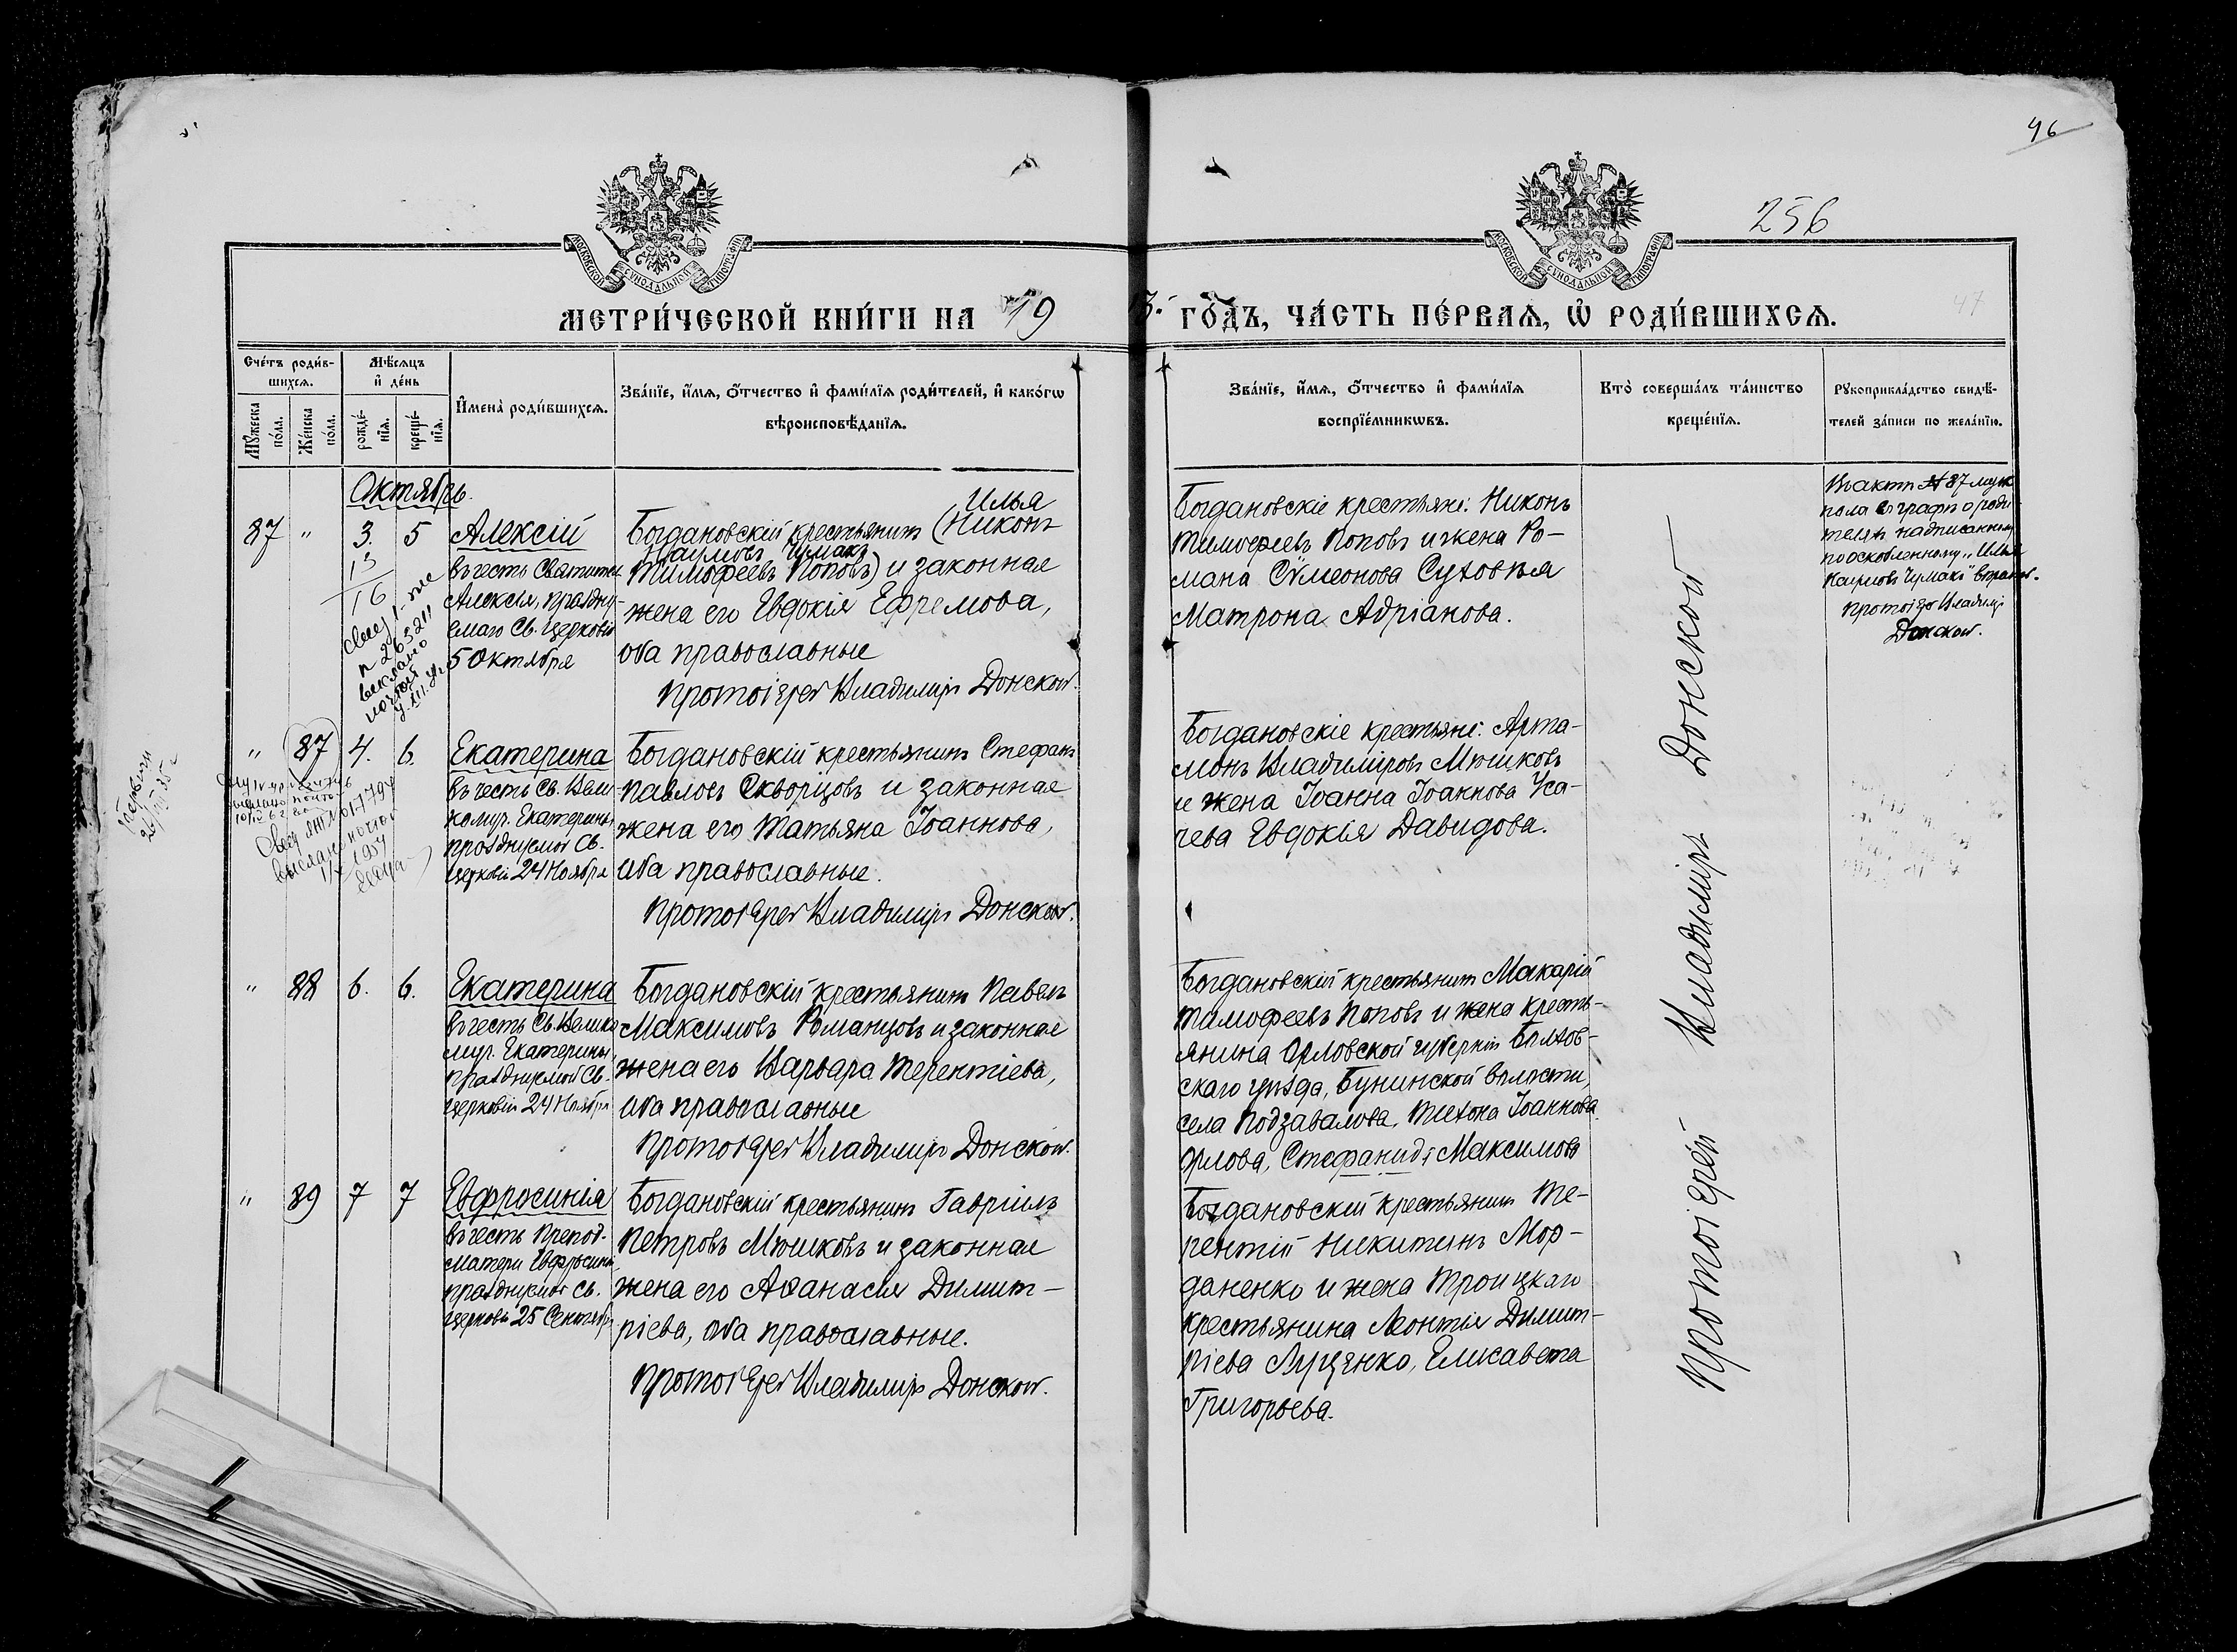 46
256
47
МОСКОВСКОЙ СѴНОДАЛЬНОЙ ТИПОГРАФІИ
МОСКОВСКОЙ СѴНОДАЛЬНОЙ ТИПОГРАФІИ
МЕТРИ́ЧЕСКОЙ КНИ́ГИ НА 1913. ГО́ДЪ, ЧА́СТЬ ПЕ́РВАѦ, Ѡ҆ РОДИ́ВШИХСѦ.
Сче́тъ роди́в-
шихсѧ.
Мꙋ́жеска по́ла.
Же́нска по́ла.
Мѣ́сѧцъ
и҆ де́нь
рожде́-
нїѧ.
креще́-
нїѧ.
И҆мена̀ роди́вшихсѧ.
Зва́нїе, и҆́мѧ, ѻ҆́тчество и҆ фами́лїѧ роди́телей, и҆ како́гѡ
вѣроисповѣ́данїѧ.
Зва́нїе, и҆́мѧ, ѻ҆́тчество и҆ фами́лїѧ
воспрїе́мникѡвъ.
Кто̀ соверша́лъ та́инство
креще́нїѧ.
Рꙋкоприкла́дство свидѣ́-
телей за́писи по жела́нїю.
Октябрь.
87 " 3. 5
13
16
Алексій
въ честь Святителя
Алексія, праздну-
емаго Св. Церковію
5 Октября
Илья
Богдановскій крестьянинъ (Никонъ
Наумовъ Чумакъ
Тимофеевъ Поповъ) и законная
жена его Евдокія Ефремова,
оба православные
Протоіерей Владиміръ Донской.
Богдановскіе крестьяне: Никонъ
Тимофеевъ Поповъ и жена Ро-
мана Сѵмеонова Сухова
Матрона Адріанова.
Въ актѣ № 87 муж.
пола въ графѣ о роди-
теляхъ надписанному
по оскобленному „Илья
Наумовъ Чумакъ" вѣрить.
Протоіерей Владиміръ
Донской.
" 87 4. 6.
Екатерина
въ честь Св. Вели-
комуч. Екатерины,
празднуемой Св.
Церковію 24 Ноября
Богдановскій крестьянинъ Стефанъ
Павловъ Скворцовъ и законная
жена его Татьяна Іоаннова,
оба православные.
Протоіерей Владиміръ Донской.
Богдановскіе крестьяне: Арта-
монъ Владиміровъ Мюшковъ
и жена Іоанна Іоаннова Уса-
чева Евдокія Давидова.
" 88 6. 6.
Екатерина
въ честь Св. Велико-
муч. Екатерины,
празднуемой Св.
Церковію 24 Ноября
Богдановскій крестьянинъ Павелъ
Максимовъ Романцовъ и законная
жена его Варвара Терентіева,
оба православные
Протоіерей Владиміръ Донской.
Богдановскій крестьянинъ Макарій
Тимофеевъ Поповъ и жена кресть-
янина Орловской губерніи Болхов-
скаго уѣзда, Бунинской волости,
села Подзавалова, Тихона Іоаннова
Орлова, Стефанида Максимова
" 89 7 7
Евфросинія
въ честь Препод.
матери Евфросиніи,
празднуемой Св.
Церковію 25 Сентября
Богдановскій крестьянинъ Гавріилъ
Петровъ Мюшковъ и законная
жена его Аѳанасія Димит-
ріева, оба православные.
Протоіерей Владиміръ Донской.
Богдановскій крестьянинъ Те-
рентій Никитинъ Мор-
даненко и жена Троицкаго
крестьянина Леонтія Димит-
ріева Луценко, Елисавета
Григорьева.
Протоіерей Владиміръ Донской